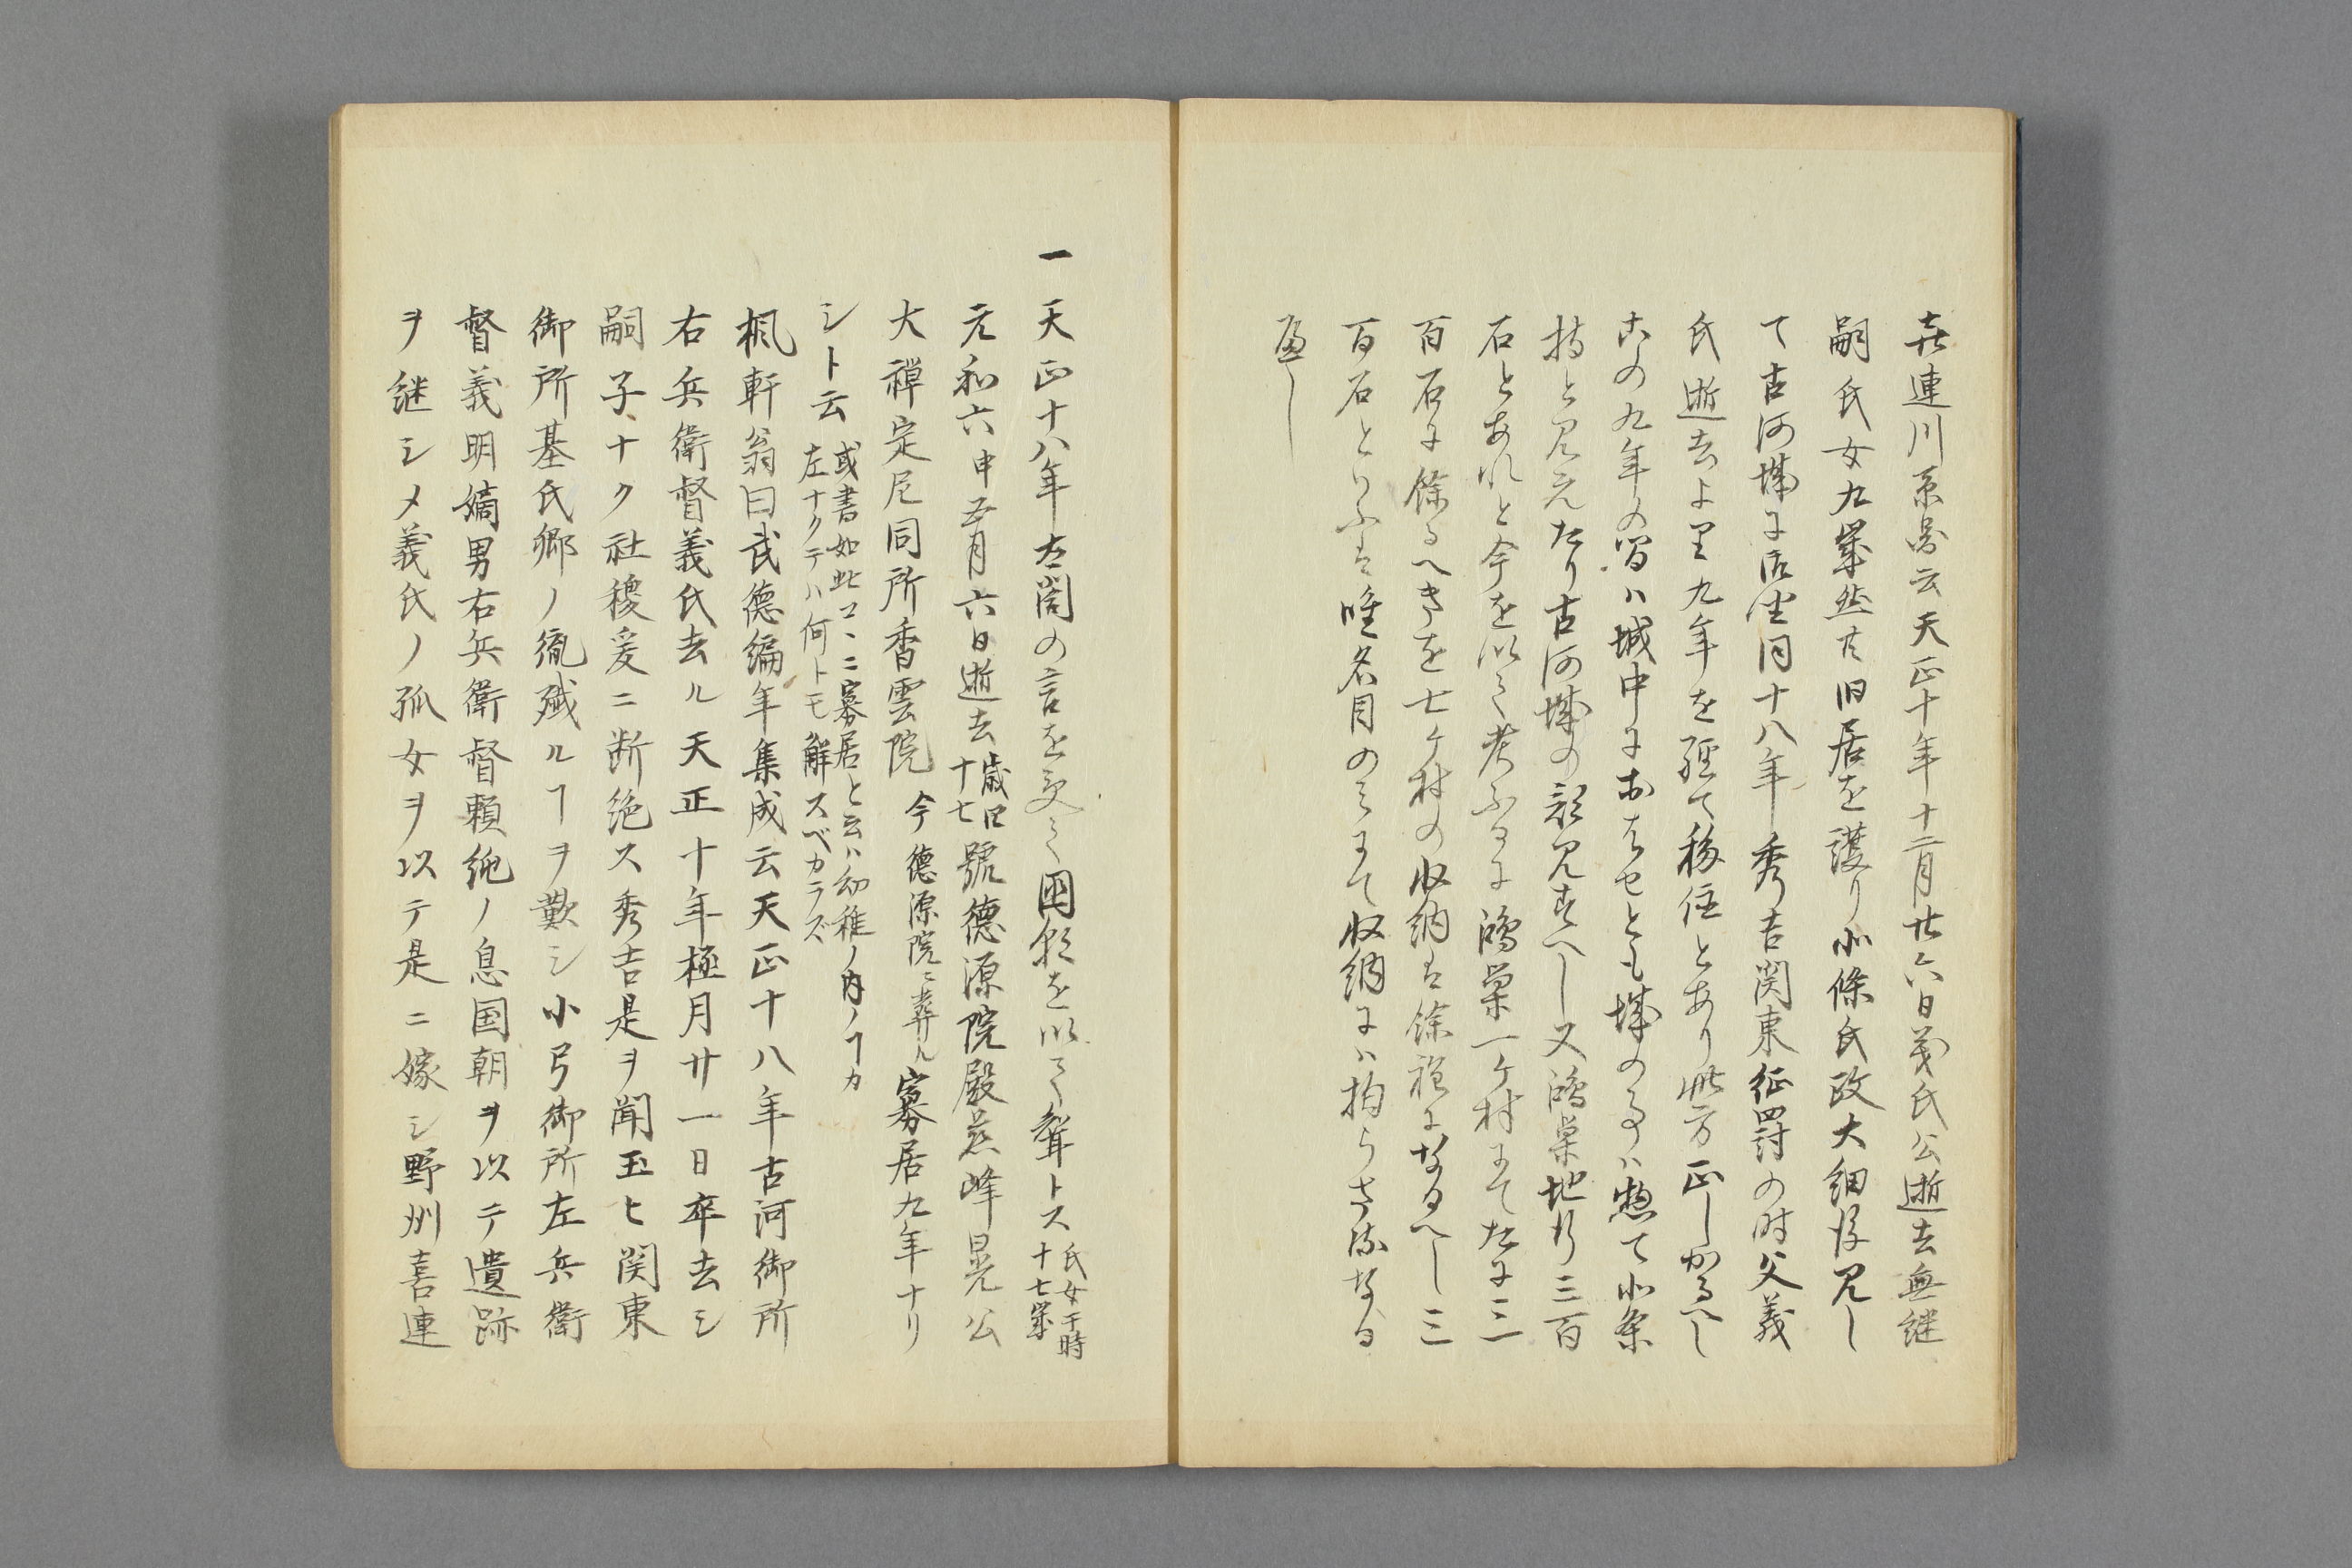 喜連川系圖云天正十年十二月廿六日義氏公逝去無継
嗣氏女九歳然共旧居を護り小條氏政大細得見し
て古河城に居住同十八年秀吉関東征罸の時父義
氏逝去より九年を経て移住とあり此方正しかるへし
この九年の間ハ城中におはせとも城の事ハ惣て小条
持と見えたり古河城の部見すへし又鴻巣地行三百
石とあれと今を以て考ふるに鴻巣一ケ村にてたに三
百石に餘るへきを七ケ村の収納は餘程になるへし三
百石といふは唯名目のミにて収納にハ拘らさるなる
へし
一天正十八年太閤の言を受て国朝を以て聟トス 氏女于時十七歳
元和六申五月六日逝去 歳四十七 號徳源院殿慈峰晃公
大禅定尼同所香雲院 今徳源院ニ葬ル 寡居九年ナリ
シト云 或書如此コヽニ寡居と云ハ幼稚ノ内ノヿカ
左ナクテハ何トモ解スベカラズ
楓軒翁曰武徳編年集成云天正十八年古河御所
右兵衛督義氏去ル天正十年極月廿一日卒去シ
嗣子ナク社稷爰ニ断絶ス秀吉是ヲ聞玉ヒ関東
御所基氏卿ノ胤殲ルヿヲ歎シ小弓御所左兵衛
督義明嫡男右兵衛督頼純ノ息国朝ヲ以テ遺跡
ヲ継シメ義氏ノ孤女ヲ以テ是ニ嫁シ野州喜連